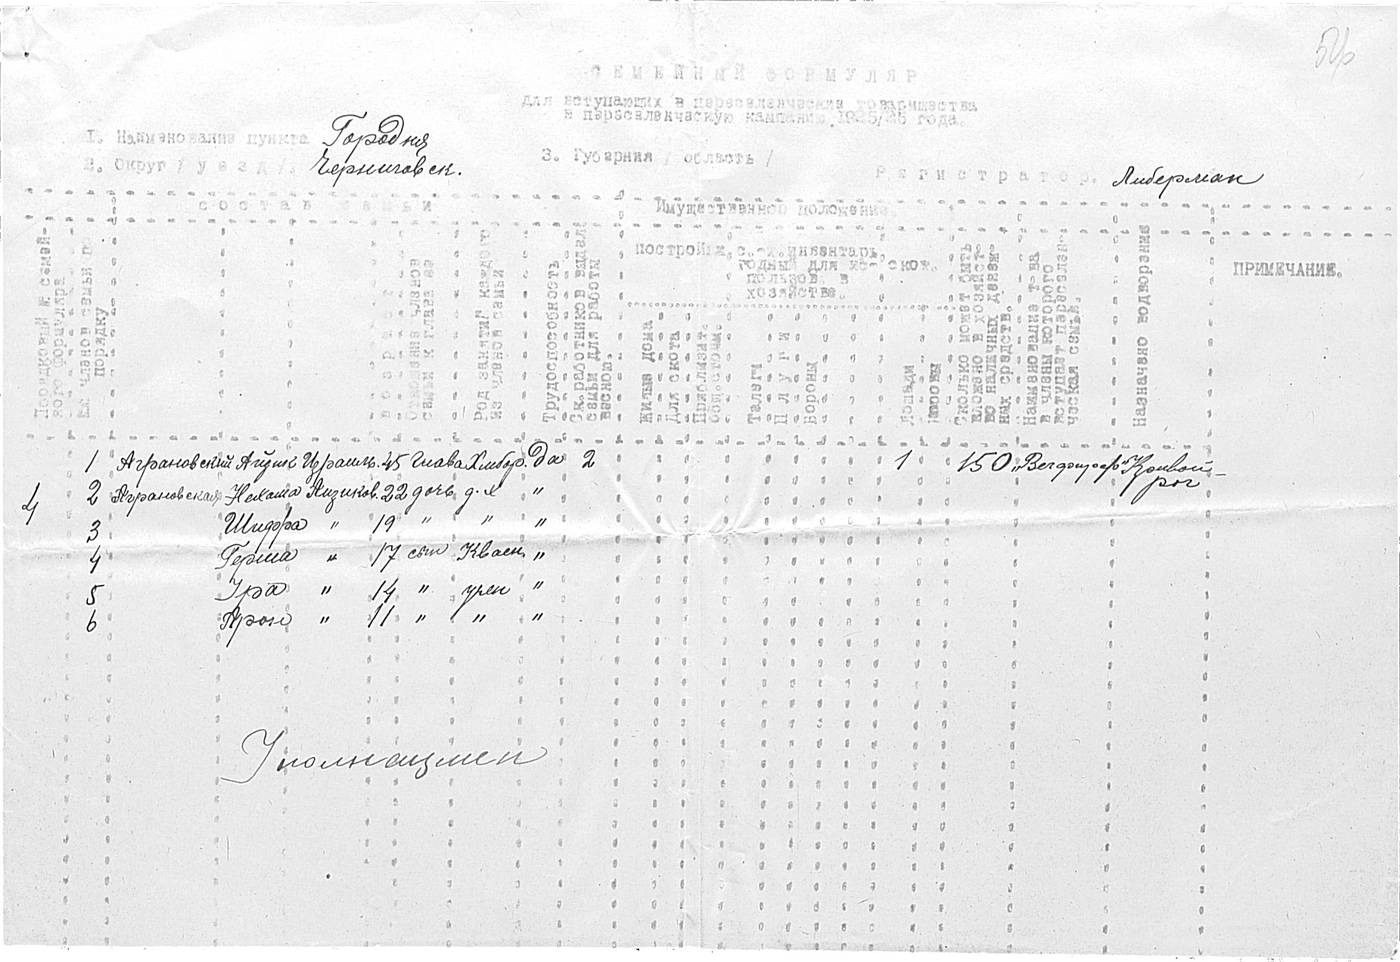 СЕМЕЙНЫЙ ФОРМУЛЯР
для вступающих в переселенческие товарищества
в переселенческую кампанию 1925/26 года.
1. Наименование пункта Городня
2. Округ /уезд/. Черниговск.
3. Губерния /область/
Регистратор. Либерман
СОСТАВ СЕМЬИ
Имущественное положение
Порядковый № семейного формуляра
№№ членов семьи по порядку
возраст
Отношение членов семьи к главе ее
Род занятий каждого из членов семьи
Трудоспособность
Ск. работников выдел. семьи для работы весною.
постройки, с.-х. инвентарь,
годный для
пользов. в
хозяйстве.
скот.
Жилые дома
Для скота
Телеги
Плуги
Бороны
Лошади
Коровы
Сколько может быть вложено в хозяйство наличных денежных средств.
Наименование т-ва в члены которого вступает переселенческая семья.
Назначено водворение
ПРИМЕЧАНИЕ.
1 Аграновский Айзик Израил. 45 Глава Хлебор. Да 2 1 150
4 2 Аграновская Нехама Айзиков. 22 дочь д.х "
3 " 19 " " "
4 Герша " 17 сын "
5 " 14 " учен "
6 Арон " 11 " " "
Уполнацмен